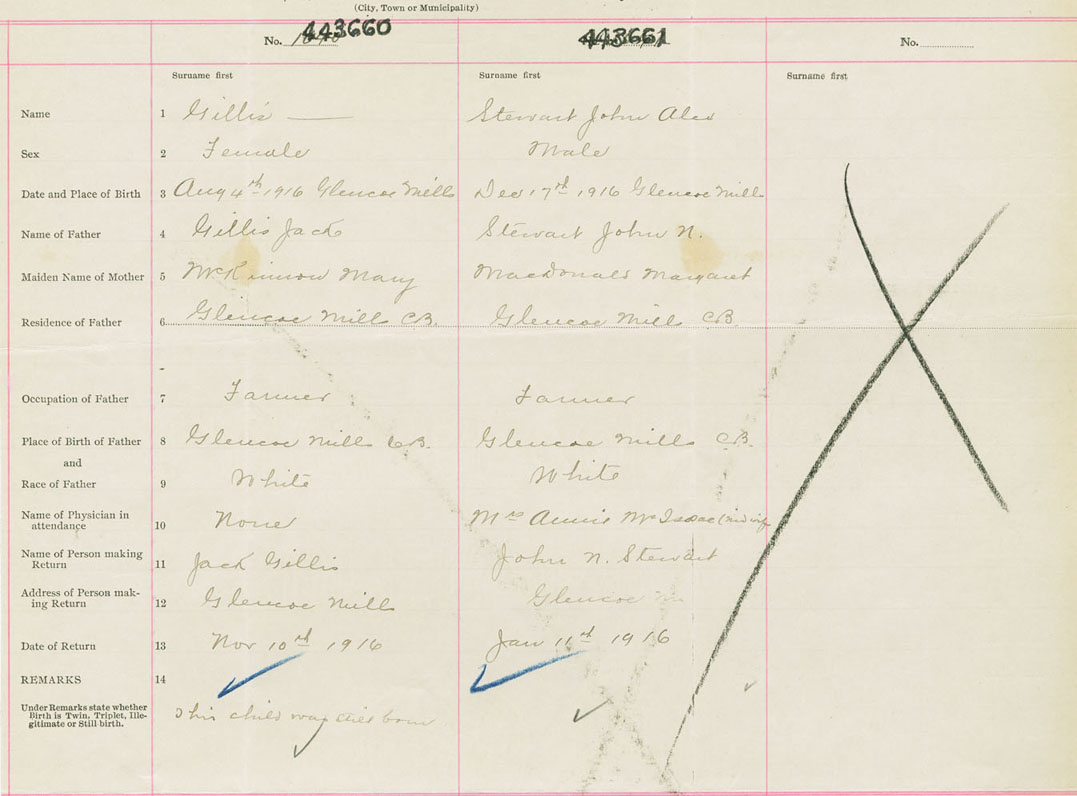 (City, Town or Municipality)
No. 443660 443661 No.
Surname first Surname first Surname first
Name 1 Gillis — Stewart John Alex
Sex 2 Female Male
Date and Place of Birth 3 Aug 4th 1916 Glencoe Mills Dec 17rd 1916 Glencoe Mills
Name of Father 4 Gillis Jack Stewart John N.
Maiden Name of Mother 5 McKinnon Mary MacDonald Margaret
Residence of Father 6 Glencoe Mill CB. Glencoe Mill CB.
Occupation of Father 7 Farmer Farmer
Place of Birth of Father 8 Glencoe Mills CB. Glencoe Mills CB.
and
Race of Father 9 White White
Name of Physician in
attendance 10 None Mrs Annie McIsaac (midwife
Name of Person making
Return 11 Jack Gillis John N. Stewart
Address of Person mak-
ing Return 12 Glencoe Mills Glencoe
Date of Return 13 Nov 10rd 1916 Jan 11rd 1916
REMARKS 14
Under Remarks state whether
Birth is Twin, Triplet, Ille-
gitimate or Still birth.
This child was still born